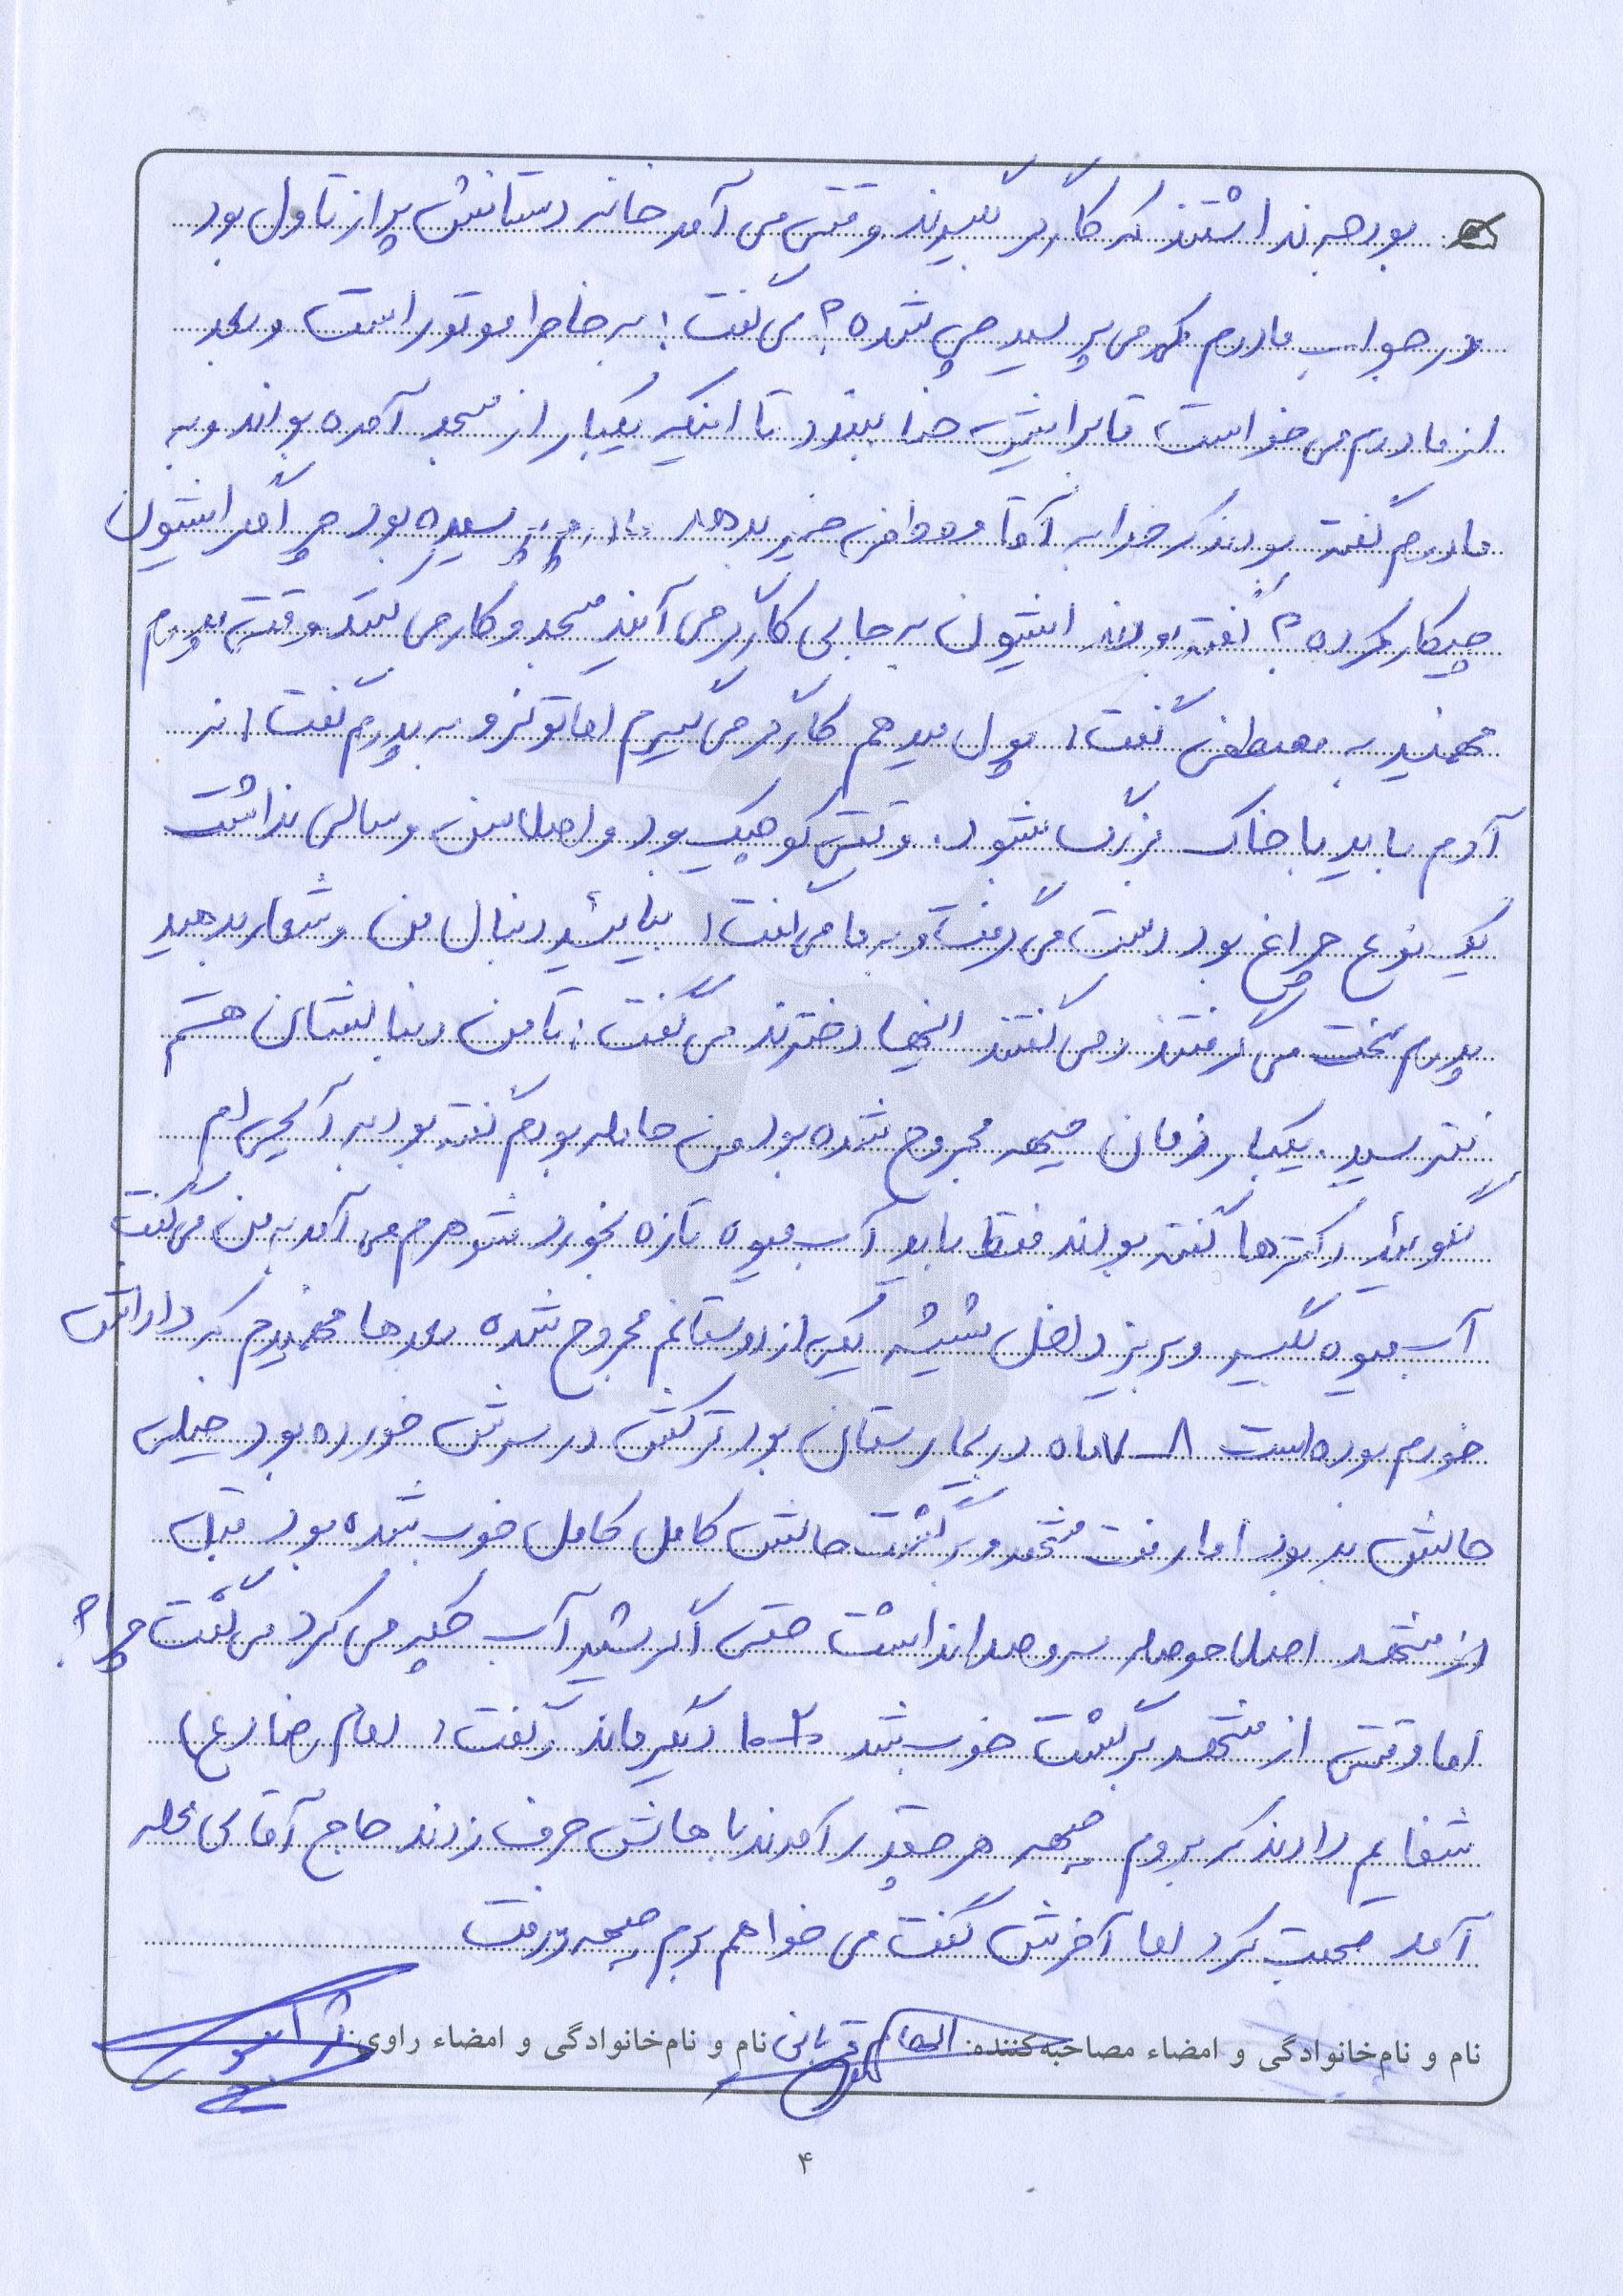 بودجه نداشتند که کارگر بگیرند وقتی می آمد خانه دستانش پر از تاول بود
در جواب مادرم که می پرسید چی شده؟ می گفت: به خاطر موتور است و بعد
از مادرم می خواست تا برایش حنا ببندد تا اینکه یکبار از مسجد آمده بودند و به
مادرم گفته بودند که خدا به آقا مصطفی خیر بدهد مادرم پرسیده بود چرا مگر ایشون
چیکار کرده؟ گفته بودند ایشون به جایی کارگر می آیند مسجد و کار می کنند وقتی پدرم
فهمید به مصطفی گفت: پول میدهم کارگر می گیرم اما تو نرو به پدرم گفت: نه
آدم باید با خاک بزرگ بشود. وقتی کوچیک بود و اصلا سن و سالی نداشت
یک نوع چراغ بود دست می گرفت و به ما می گفت: بیائید دنبال من و شعار بدهید
پدرم سخت می گرفتند و می گفتند اینها دخترند می گفت: تا من دنبالشان هستم
نترسید. یکبار زمان جبهه مجروح شده بود من حامله بودم گفته بود به آبجی ام
نگوئید دکترها گفته بودند فقط باید آب میوه تازه بخورد شوهرم می آمد به من می گفت
آب میوه بگیر و بریز داخل شیشه یکی از دوستانم مجروح شده بعدها فهمیدم که داداش
خودم بوده است ۸-۷ ماه در بیمارستان بود ترکش در سرش خورده بود خیلی
حالش بد بود اما رفت مشهد و برگشت حالش کامل کامل خوب شده بود قبل
از مشهد اصلا حوصله سر و صدا نداشت حتی اگر شیر آب چکه می کرد می گفت چرا؟
اما وقتی از مشهد برگشت خوب شد دیگر ماند و گفت: امام رضا (ع)
شفایم دادند که بروم جبهه هر چقدر آمدند باهاش حرف زدند حاج آقای محله
آمد صحبت کرد اما آخرش گفت می خواهم بروم جبهه و رفت
نام و نام‌خانوادگی و امضاء مصاحبه‌کننده: الهام قربانی نام و نام‌خانوادگی و امضاء راوی:
۴